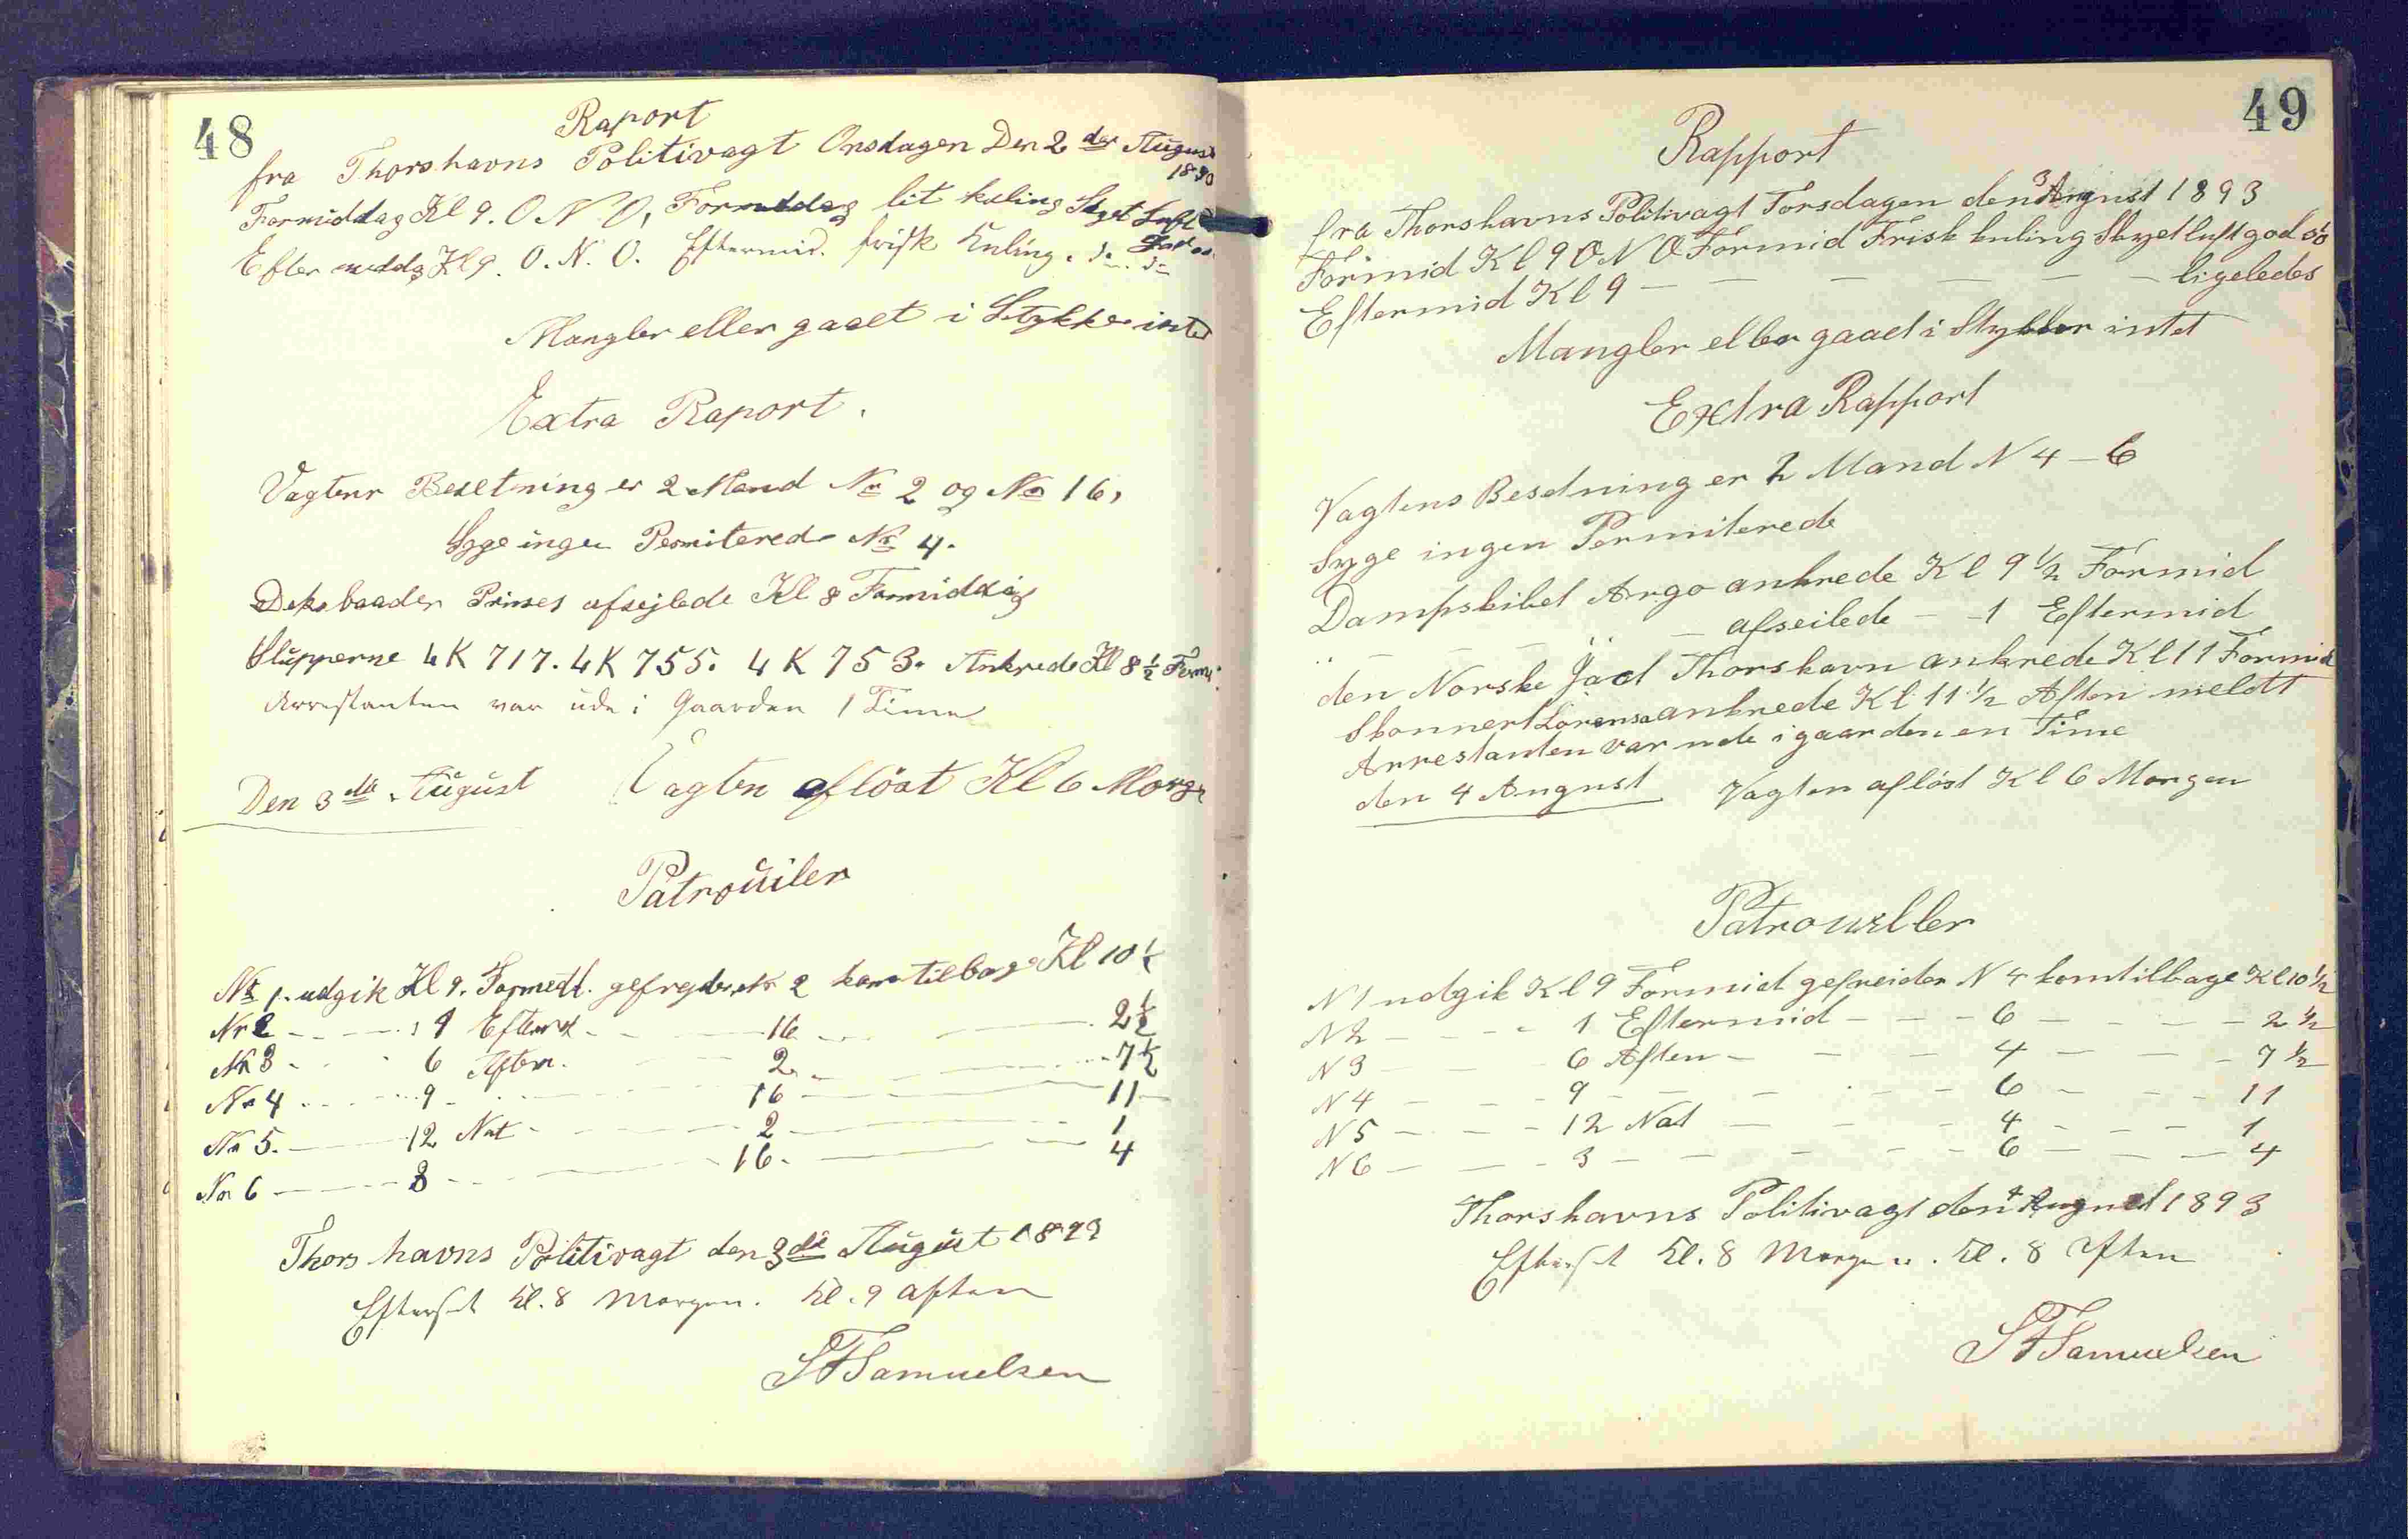 48
Raport
fra Thorshavns Politivagt Onsdagen Den 2 der August
1890
Formiddag Kl 9. O N O, Formiddag lit kuling Skyet Luft
Efter middg Kl 9. O. N. O. Eftermid. frisk Kuling.
Mangler eller gaaet i Stykker intet
Extra Raport.
Vagtens Besetning er 2 Mand Nr 2 og No 16,
Syge ingen Permiterede Nr 4.
Deksbaaden Prinses afsejlede Kl 8 Formiddag
Slupperne 4K 717. 4K 755. 4K 753. Ankrede Kl 8 1/2 Formi:
Arrestanten var ude i Gaarden 1 Time
Den 3 die August Vagten aflöst Kl 6 Morge
Patrouiler
Nr 1. udgik Kl 9. Formedd. gefreyder Nr 2 kom tilbage Kl 10 1/2
Nr 2 - - - 1 Efterm - - 16 - - 2 1/2
Nr 3 - - 6 Aften. - - 2 - - 7 1/2
Nr 4 - - - 9 - - - 16 - - 11
Nr 5. - - 12 Nat - - 2 - - 1
Nr 6 - - - 3 - - - 16. - - 4
Thorshavns Politivagt den 3die August 1893
Efterset Kl. 8 Morgen. Kl. 9 aften
S F Samuelsen
49
Rapport
fra Thorshavns Politivagt Torsdagen den 3 August 1893
Formid Kl 9 O N O Formid Frisk kuling Skyet luft god sö
Eftermid Kl 9 - - - - - - ligeledes
Mangler eller gaaet i Stykker intet
Extra Rapport
Vagtens Besetning er 2 Mand N 4 - 6
Syge ingen Permiterede
Dampskibet Argo ankrede Kl 9 1/2 Formid
" - - - - afseilede - - 1 Eftermid
den Norske Jact Thorshavn ankrede Kl 11 Formid
Skonnert Lorensa ankrede Kl 11 1/2 Aften meldtt
Arrestanten var ude i gaarden en Time
den 4 August Vagten aflöst Kl 6 Morgen
Patrouiller
N 1 udgik Kl 9 Formid gefreider N 4 kom tilbage Kl 10 1/2
N 2 - - - 1 Eftermid - - - 6 - - - - 2 1/2
N 3 - - - 6 Aften - - - 4 - - - - 7 1/2
N 4 - - - 9 - - - - - 6 - - - 11
N 5 - - - 12 Nat - - - 4 - - - 1
N 6 - - - 3 - - - - - 6 - - - 4
Thorshavns Politivagt den 4 August 1893
Efterset Kl. 8 Morgen. Kl. 8 Aften
S F Samuelsen